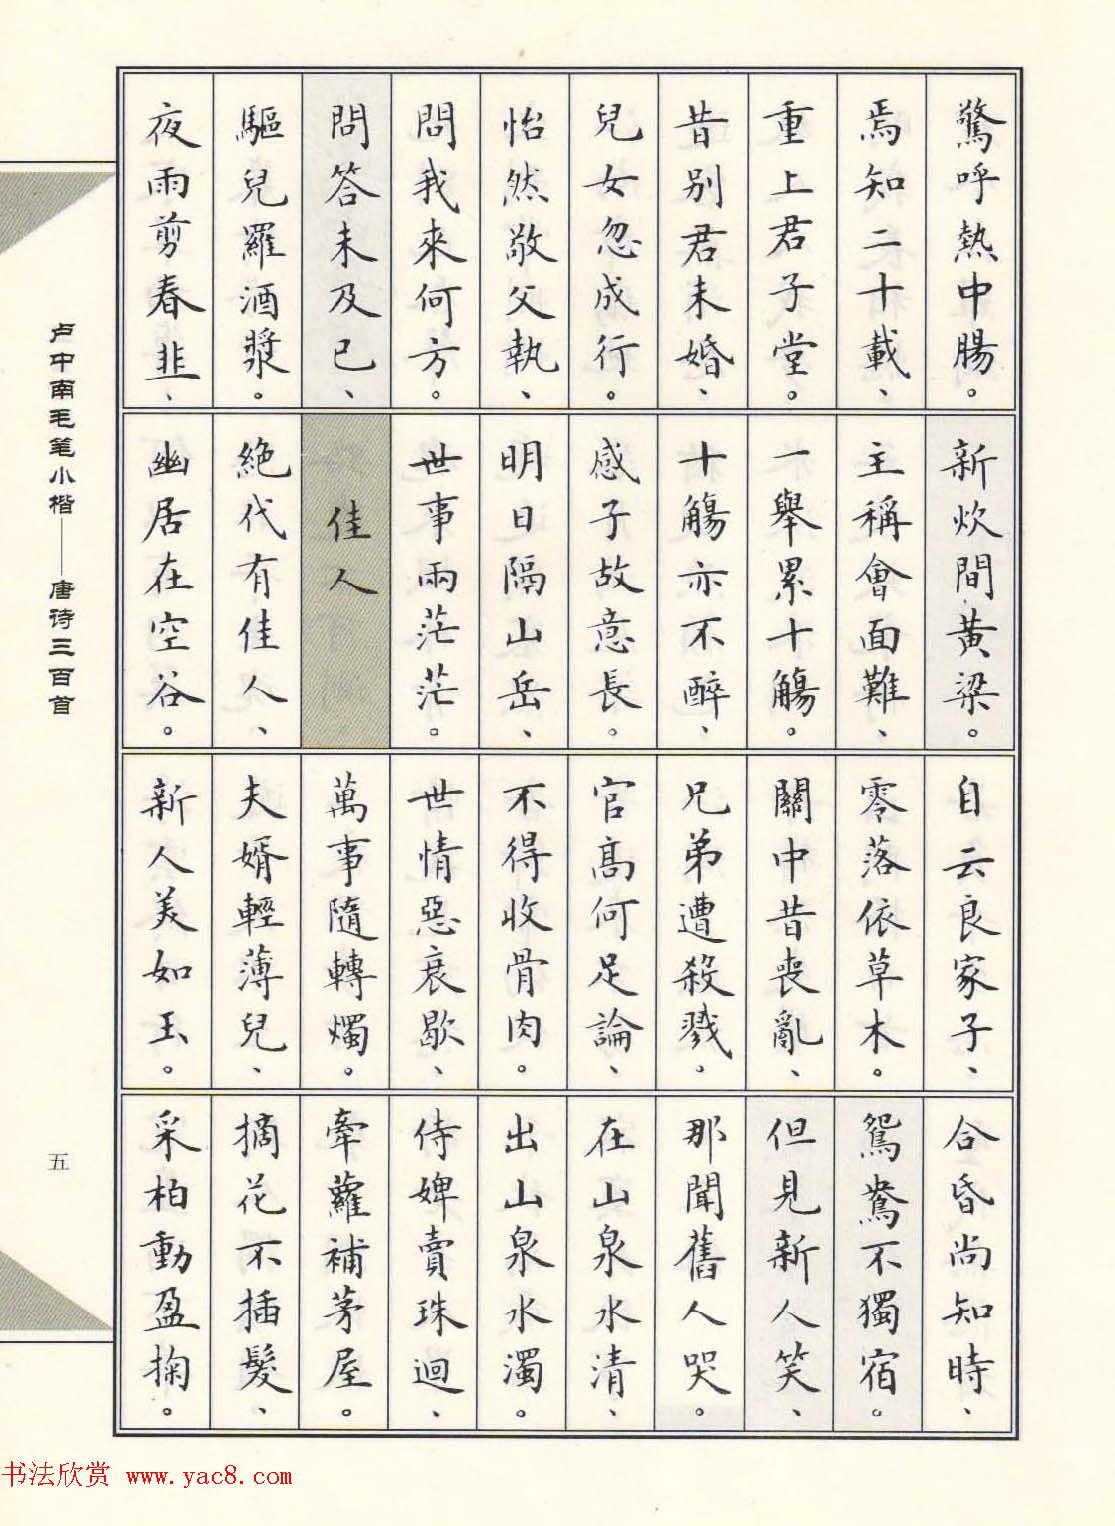 驚呼熱中腸。
焉知二十載、
重上君子堂。
昔別君未婚、
兒女忽成行。
怡然敬父執、
問我來何方。
問答未及已、
驅兒羅酒漿。
夜雨剪春韭、
新炊間黃粱。
主稱會面難、
一舉累十觴。
十觴亦不醉、
感子故意長。
明日隔山岳、
世事兩茫茫。
佳人
絕代有佳人、
幽居在空谷。
自云良家子、
零落依草木。
關中昔喪亂、
兄弟遭殺戮。
官高何足論、
不得收骨肉。
世情惡衰歇、
萬事隨轉燭。
夫婿輕薄兒、
新人美如玉。
合昏尚知時、
鴛鴦不獨宿。
但見新人笑、
那聞舊人哭。
在山泉水清、
出山泉水濁。
侍婢賣珠迴、
牽蘿補茅屋。
摘花不插髮、
采柏動盈掬。
卢中南毛笔小楷——唐诗三百首
五
书法欣赏 www.yac8.com